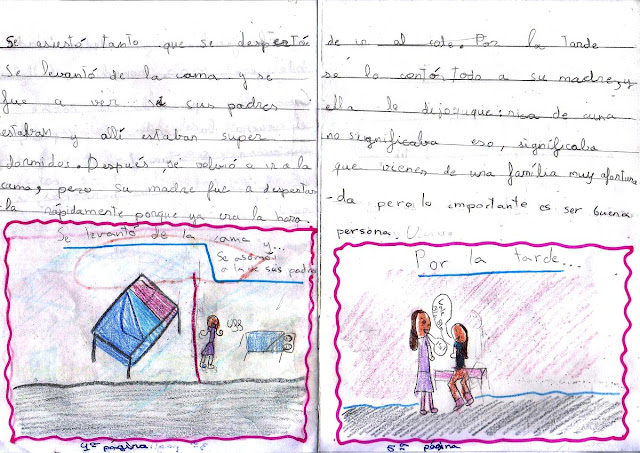 Se asiestó tanto que se despertó.
Se levantó de la cama y se
fue a ver si sus padres
estaban y allí estaban super
dormidos. Después, se volvió a ir a la
cama, pero su madre fue a despertar
-la rápidamente porque ya era la hora.
Se levantó de la cama y...
Se asomó
a la de sus padre
4ª página
de ir al cole. Por la tarde
se lo contó todo a su madre, y
ella le dijo que: rica de cuna
no significaba eso, significaba
que vienes de una família muy afortuna
-da pero lo importante es ser buena
persona.
Por la tarde...
5ª página